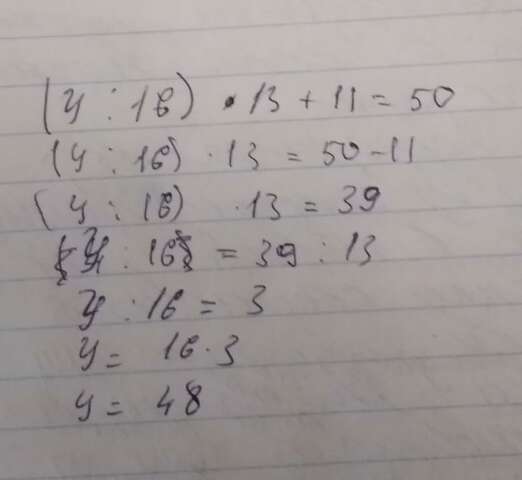 (y : 16) · 13 + 11 = 50
(y : 16) · 13 = 50 - 11
(y : 16) · 13 = 39
y : 16 = 39 : 13
y : 16 = 3
y = 16 · 3
y = 48